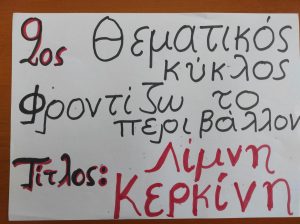 2ος Θεματικός
κύκλος
Φροντίζω το
περιβάλλον
Τίτλος: Λίμνη
Κερκίνη